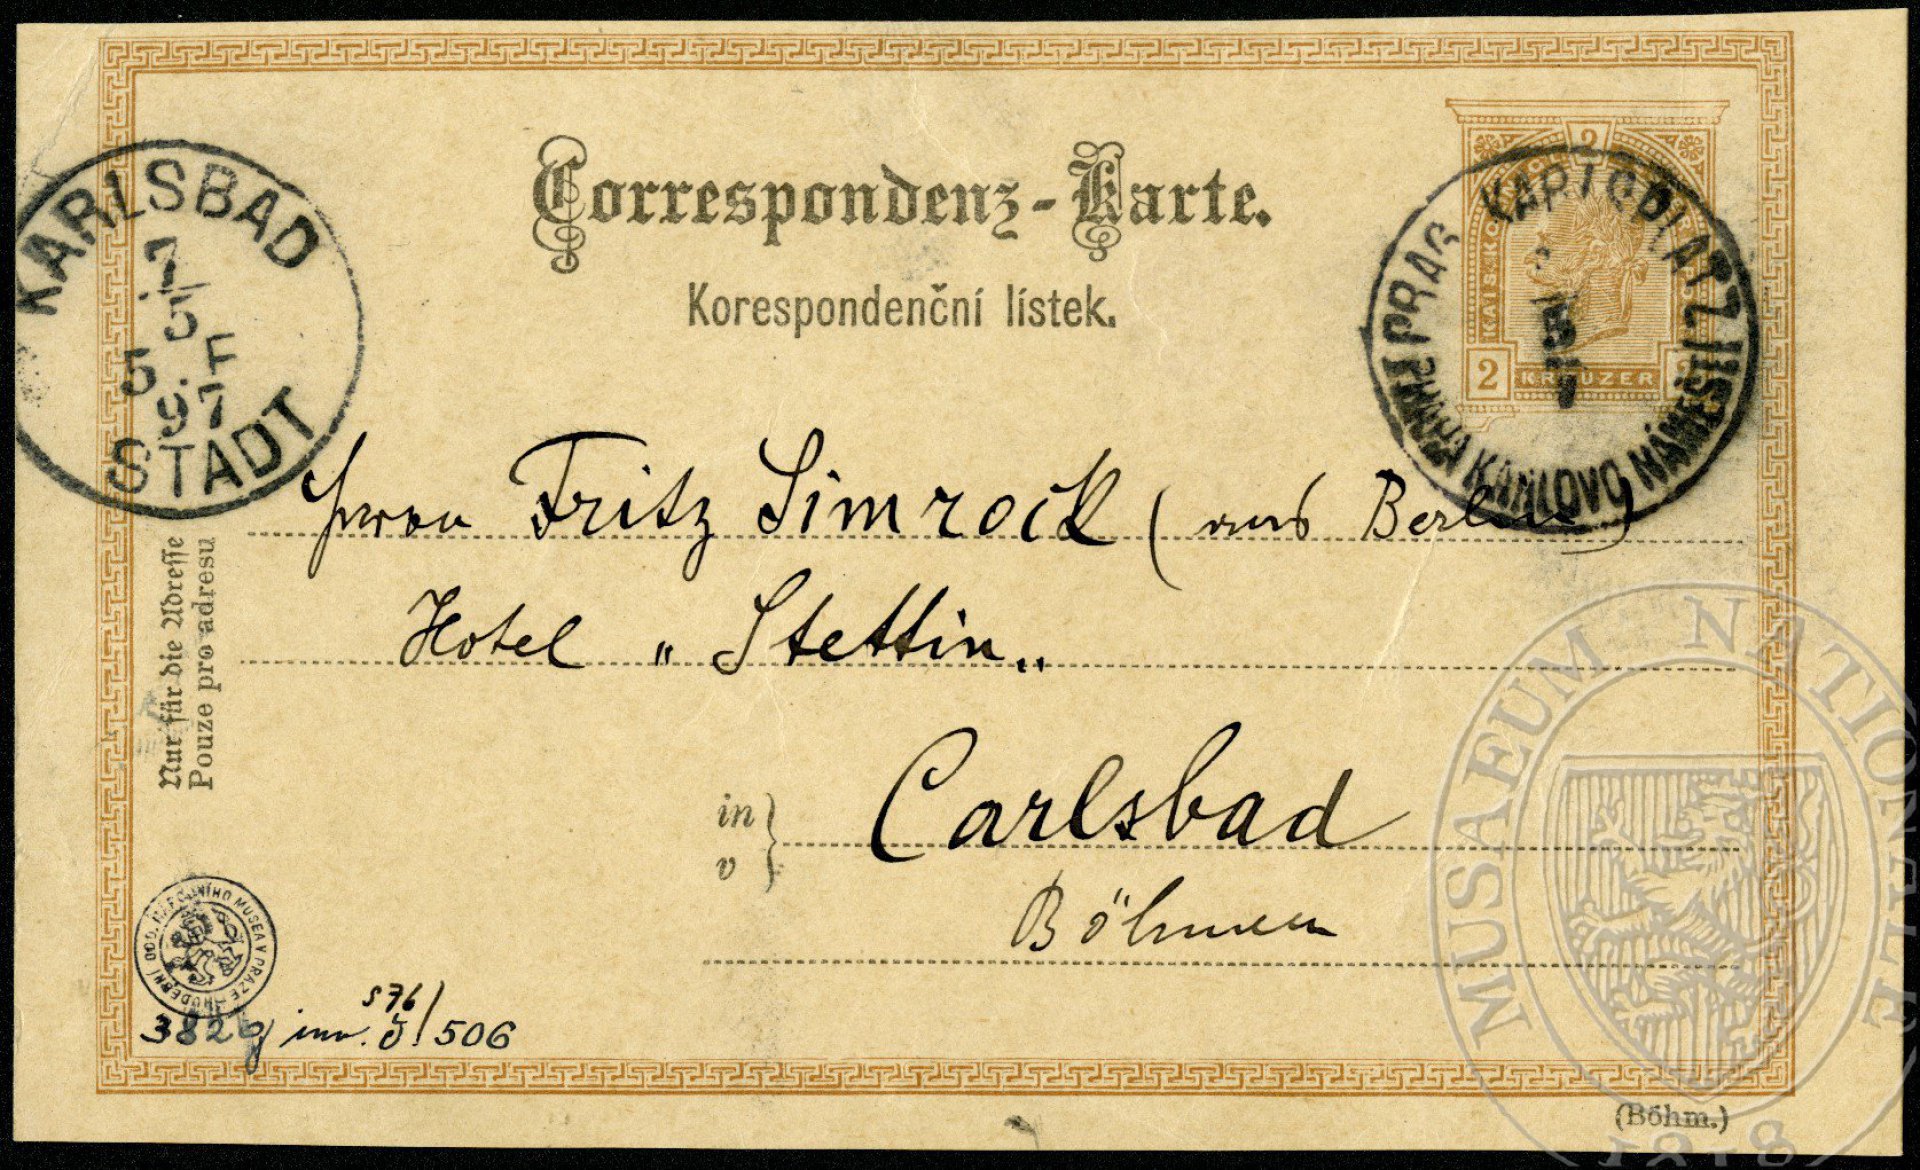 Correspondenz-Karte.
Korespondenční lístek.
KARLSBAD
7/5
5. F
97
STADT
2
KREUZER
2
PRAG KARTSPLATZ
PRAHA KARLOVO NÁMĚSTÍ
Herrn Fritz Simrock (aus Berlin)
Hotel „Stettin„
in
v
Carlsbad
Böhmen
Nur für die Adresse
Pouze pro adresu
HUDEBNÍ ODD. NÁRODNÍHO MUSEA V PRAZE
382g inv. S 76/ 506
(Böhm.)
MUSAEUM NATIONALE
1818